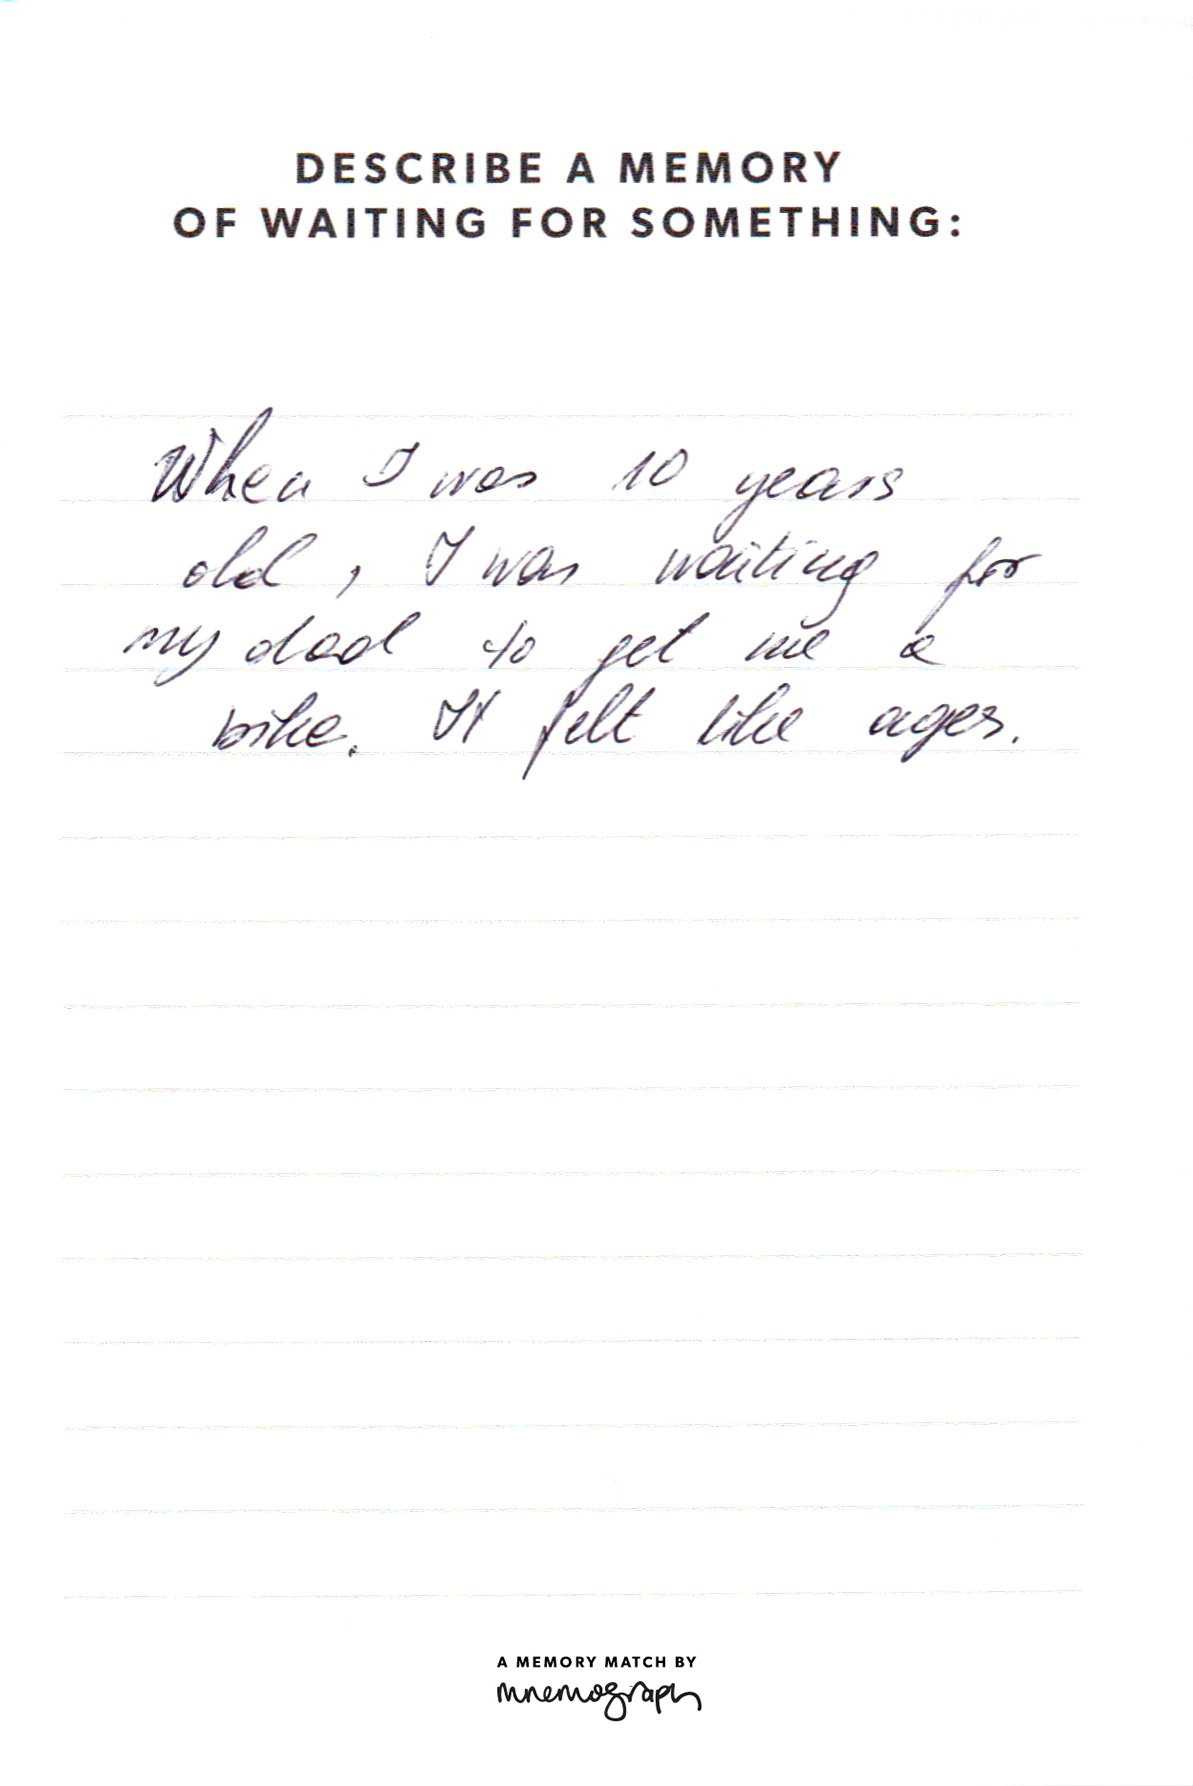 DESCRIBE A MEMORY
OF WAITING FOR SOMETHING:
When I was 10 years
old, I was waiting for
my dad to get me a
bike. It felt like ages.
A MEMORY MATCH BY
mnemograph